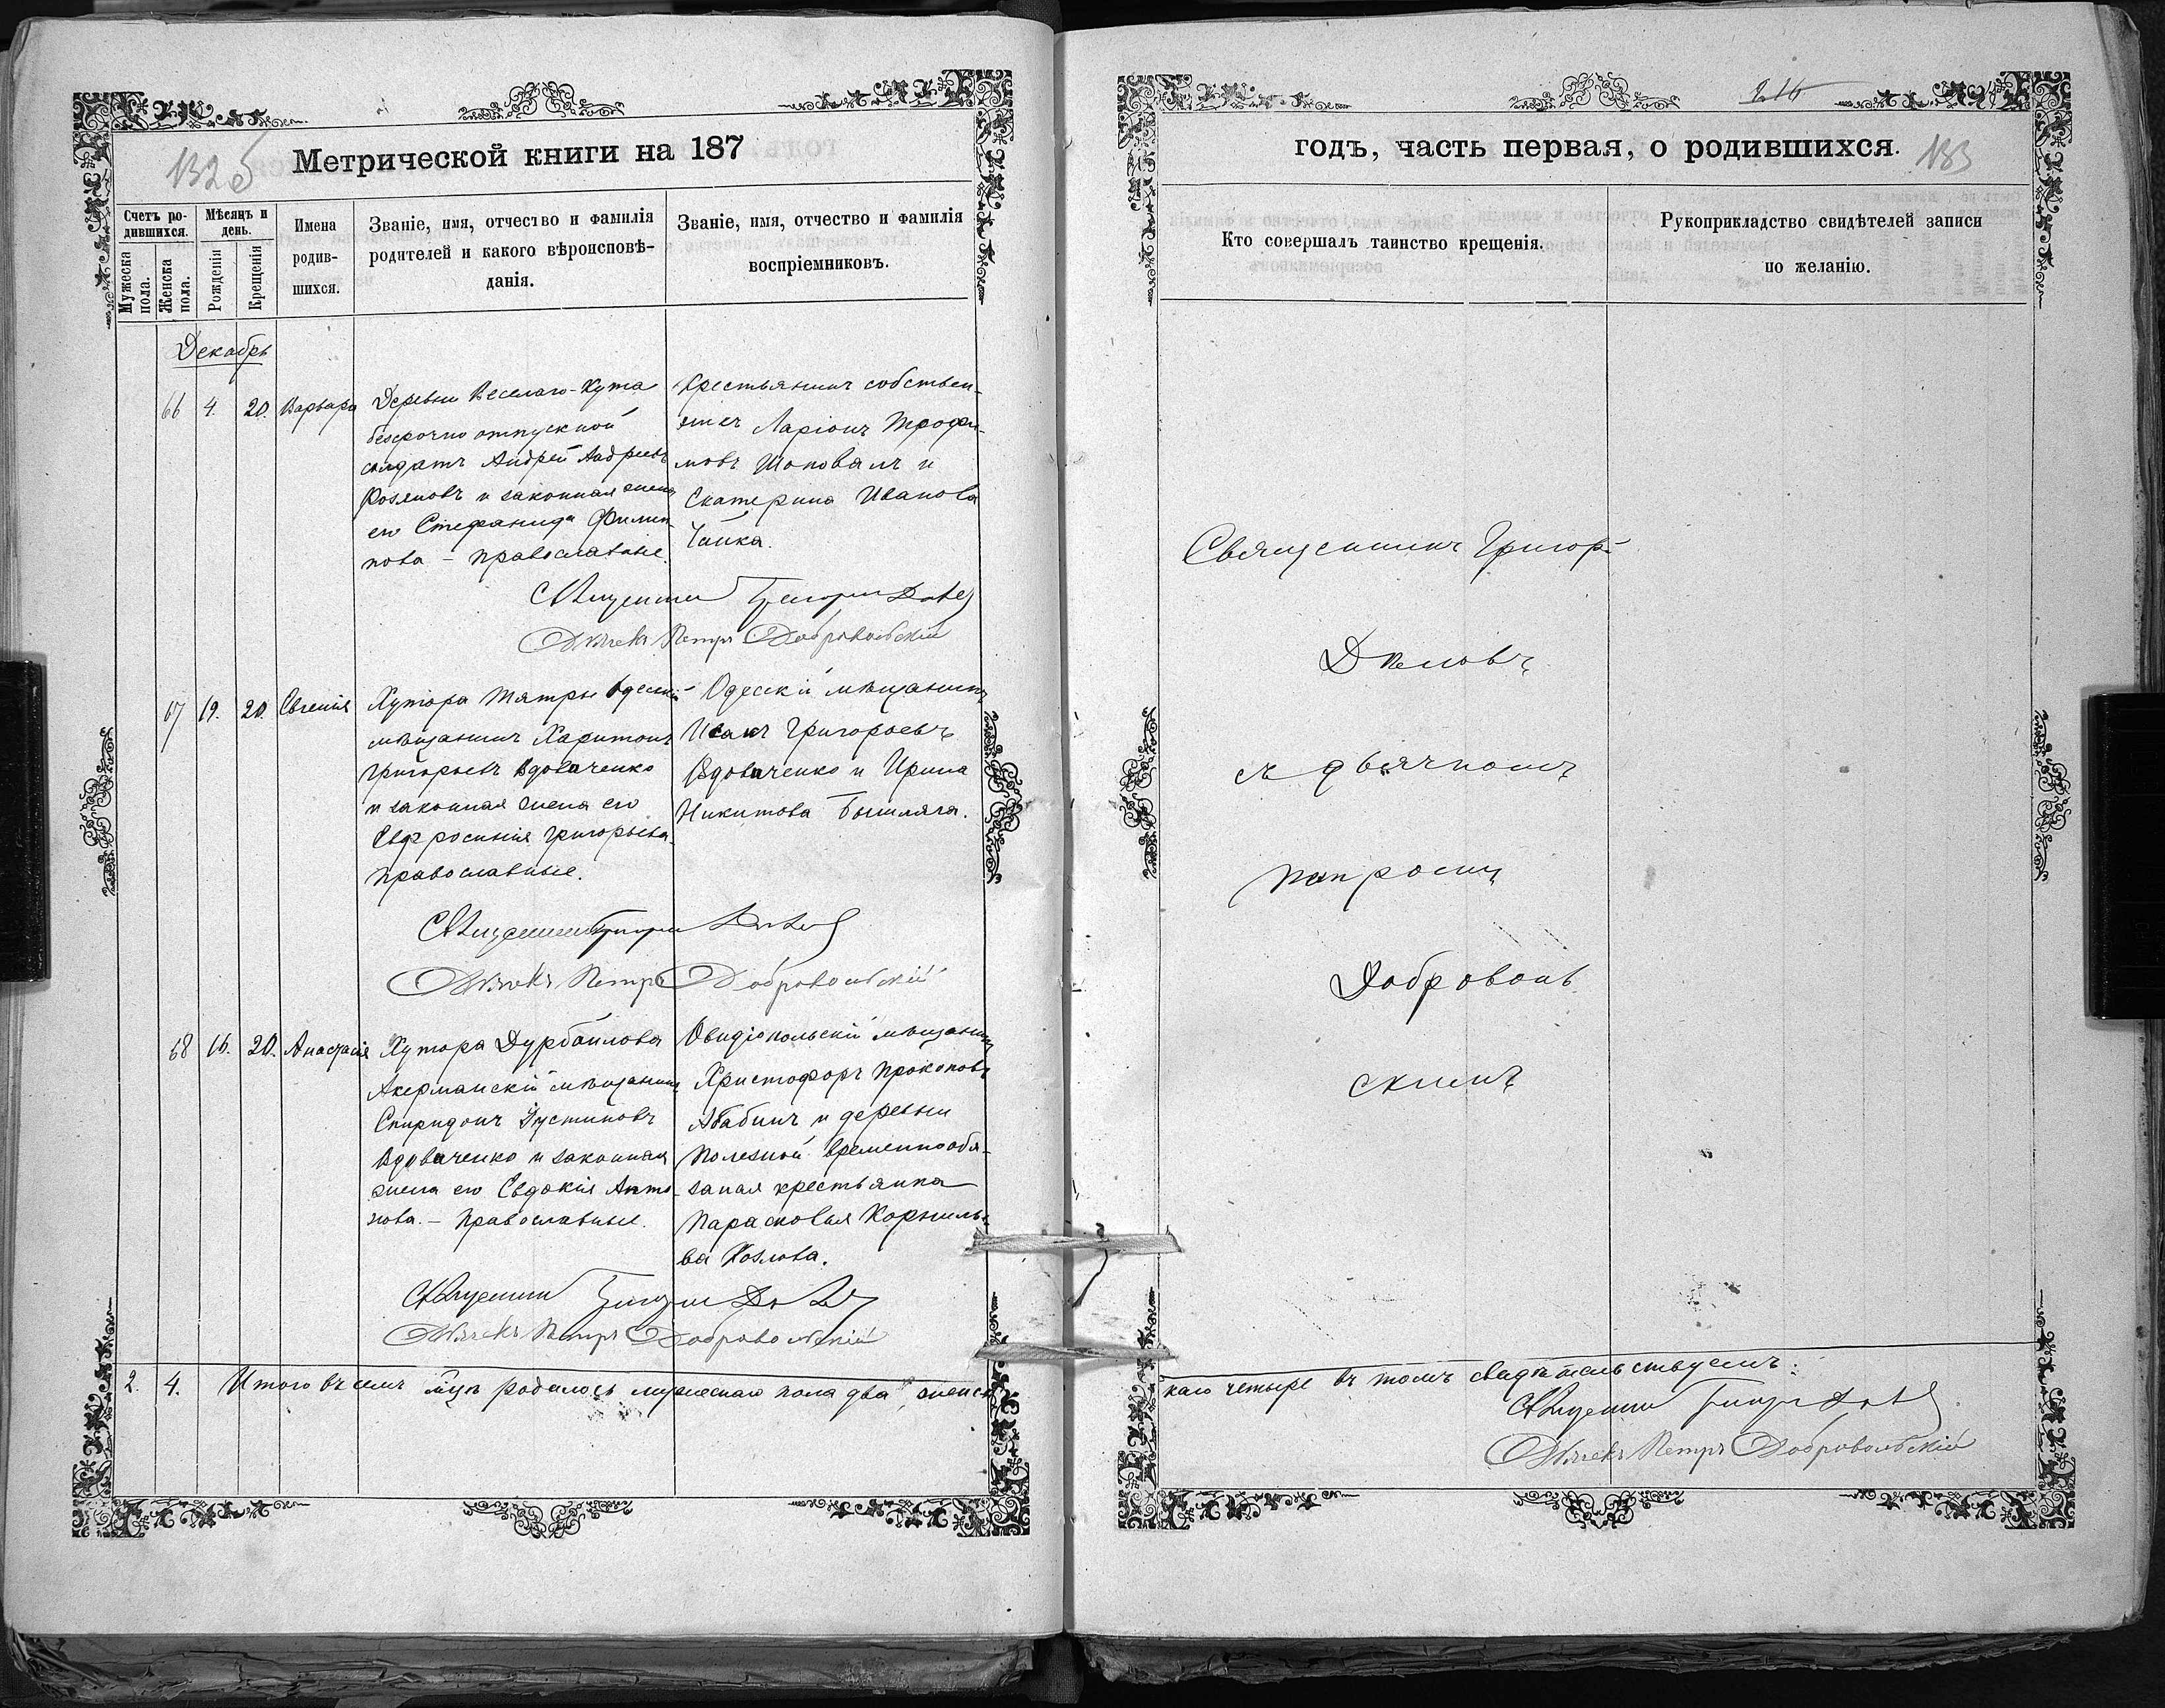 132 б
Метрической книги на 187
Счетъ ро-
дившихся.
Мужеска
пола.
Женска
пола.
Мѣсяцъ и
день.
Рожденія
Крещенія
Имена
родив-
шихся.
Званіе, имя, отчество и фамилія
родителей и какого вѣроисповѣ-
данія.
Званіе, имя, отчество и фамилія
воспріемниковъ.
Декабрь
66 4. 20. Варвара
Деревни Веселаго-Кута
безсрочно отпускной
солдатъ Андрей Андреевъ
Козловъ и законная жена
его Стефанида Филип-
пова – православные.
Крестьянинъ собствен-
никъ Ларіонъ Трофи-
мовъ Шаповалъ и
Екатерина Иванова
Чайка.
Священникъ Григорій
Дьячекъ Петръ Добровольскій
67 19. 20. Евгенія
Хутора Тятры Одескій
мѣщанинъ Харитонъ
Григорьевъ Вдовиченко
и законная жена его
Евфросинія Григорьева.
Православные.
Одесскій мѣщанинъ
Исакъ Григорьевъ
Вдовиченко и Ирина
Никитова
Священникъ Григорій
Дьячекъ Петръ Добровольскій
68 16. 20. Анастасія
Хутора Дурбайлова
Акерманскій мѣщанинъ
Спиридонъ Іустиновъ
Вдовиченко и законная
жена его Евдокія Анто-
нова. – Православные.
Овидіопольскій мѣщанинъ
Христофоръ Прокоповъ
Абабинъ и деревни
Полезной временнообя-
заная крестьянка
Парасковья Корнилье-
ва Козлова.
Священникъ Григорій
Дьячекъ Петръ Добровольскій
2. 4. Итого въ семъ м-цѣ родилось мужескаго пола два, женс-
216
годъ, часть первая, о родившихся.
183
Кто совершалъ таинство крещенія.
Рукоприкладство свидѣтелей записи
по желанію.
Священникъ Григорій
съ дьячкомъ
Петромъ
Доброволь
скимъ
каго четыре въ томъ свидѣтельствуемъ:
Священникъ Григорій
Дьячекъ Петръ Добровольскій